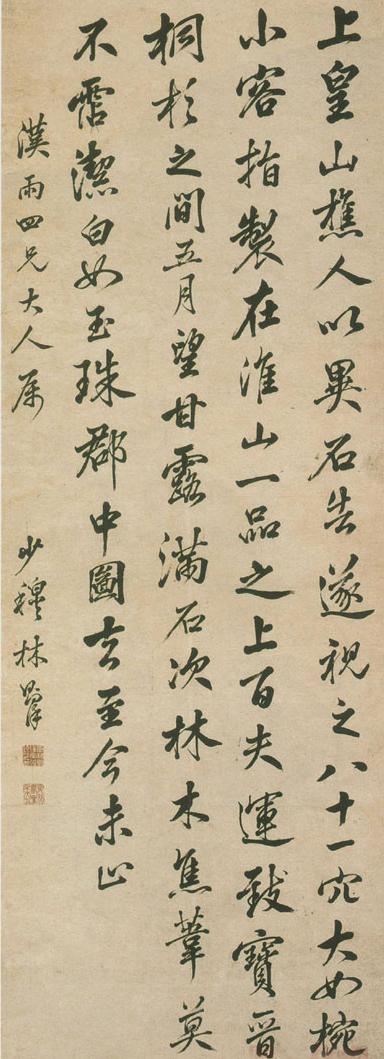 上皇山樵人以異石告遂視之八十一穴大如椀
小容指製在淮山一品之上百夫運致寶晉
桐杉之間五月望甘露滿石次林木焦葦莫
不霑潔白如玉珠郡中圖去至今未止
漢雨四兄大人属
少穆林